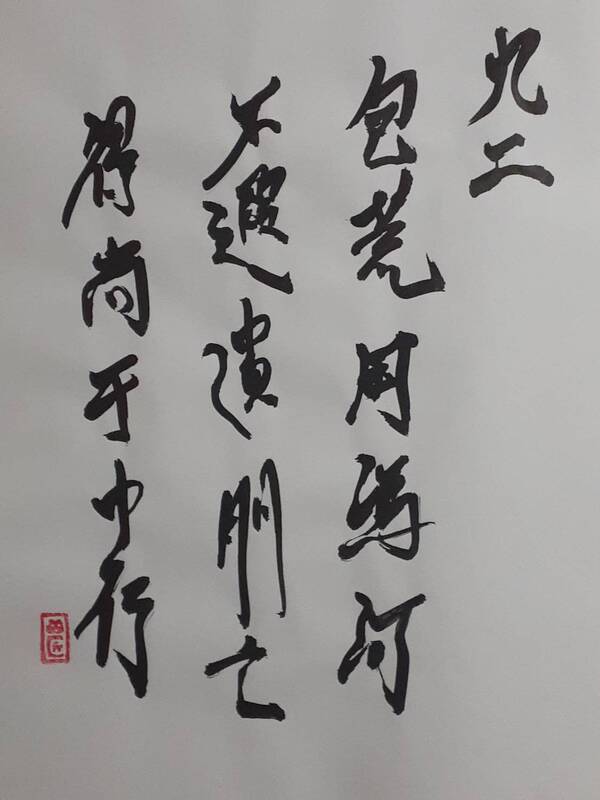 九二
包荒用馮河
不遐遺朋亡
得尚于中行